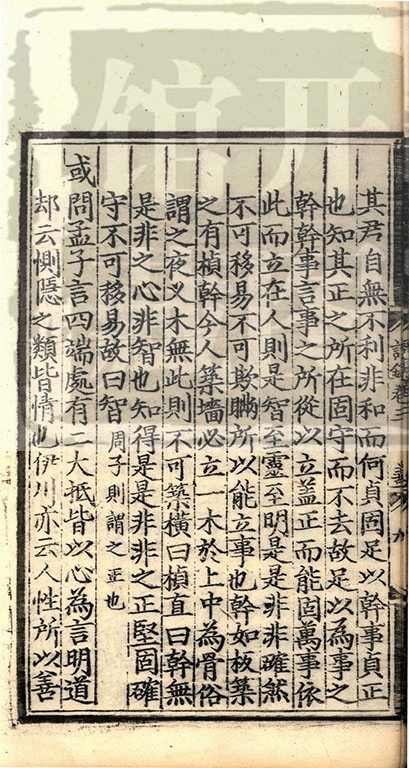 其君自無不利非和而何貞固足以幹事貞正
也知其正之所在固守而不去故足以為事之
幹幹事言事之所從以立蓋正而能固萬事依
此而立在人則是智至靈至明是是非非確然
不可移易不可欺瞞所以能立事也幹如板築
之有楨幹今人築墻必立一木於上中為骨俗
謂之夜叉木無此則不可築橫曰楨直曰幹無
是非之心非智也知得是是非非之正堅固確
守不可移易故曰智周子則謂之正也
或問孟子言四端處有二大抵皆以心為言明道
却云惻隱之類皆情也伊川亦云人性所以善